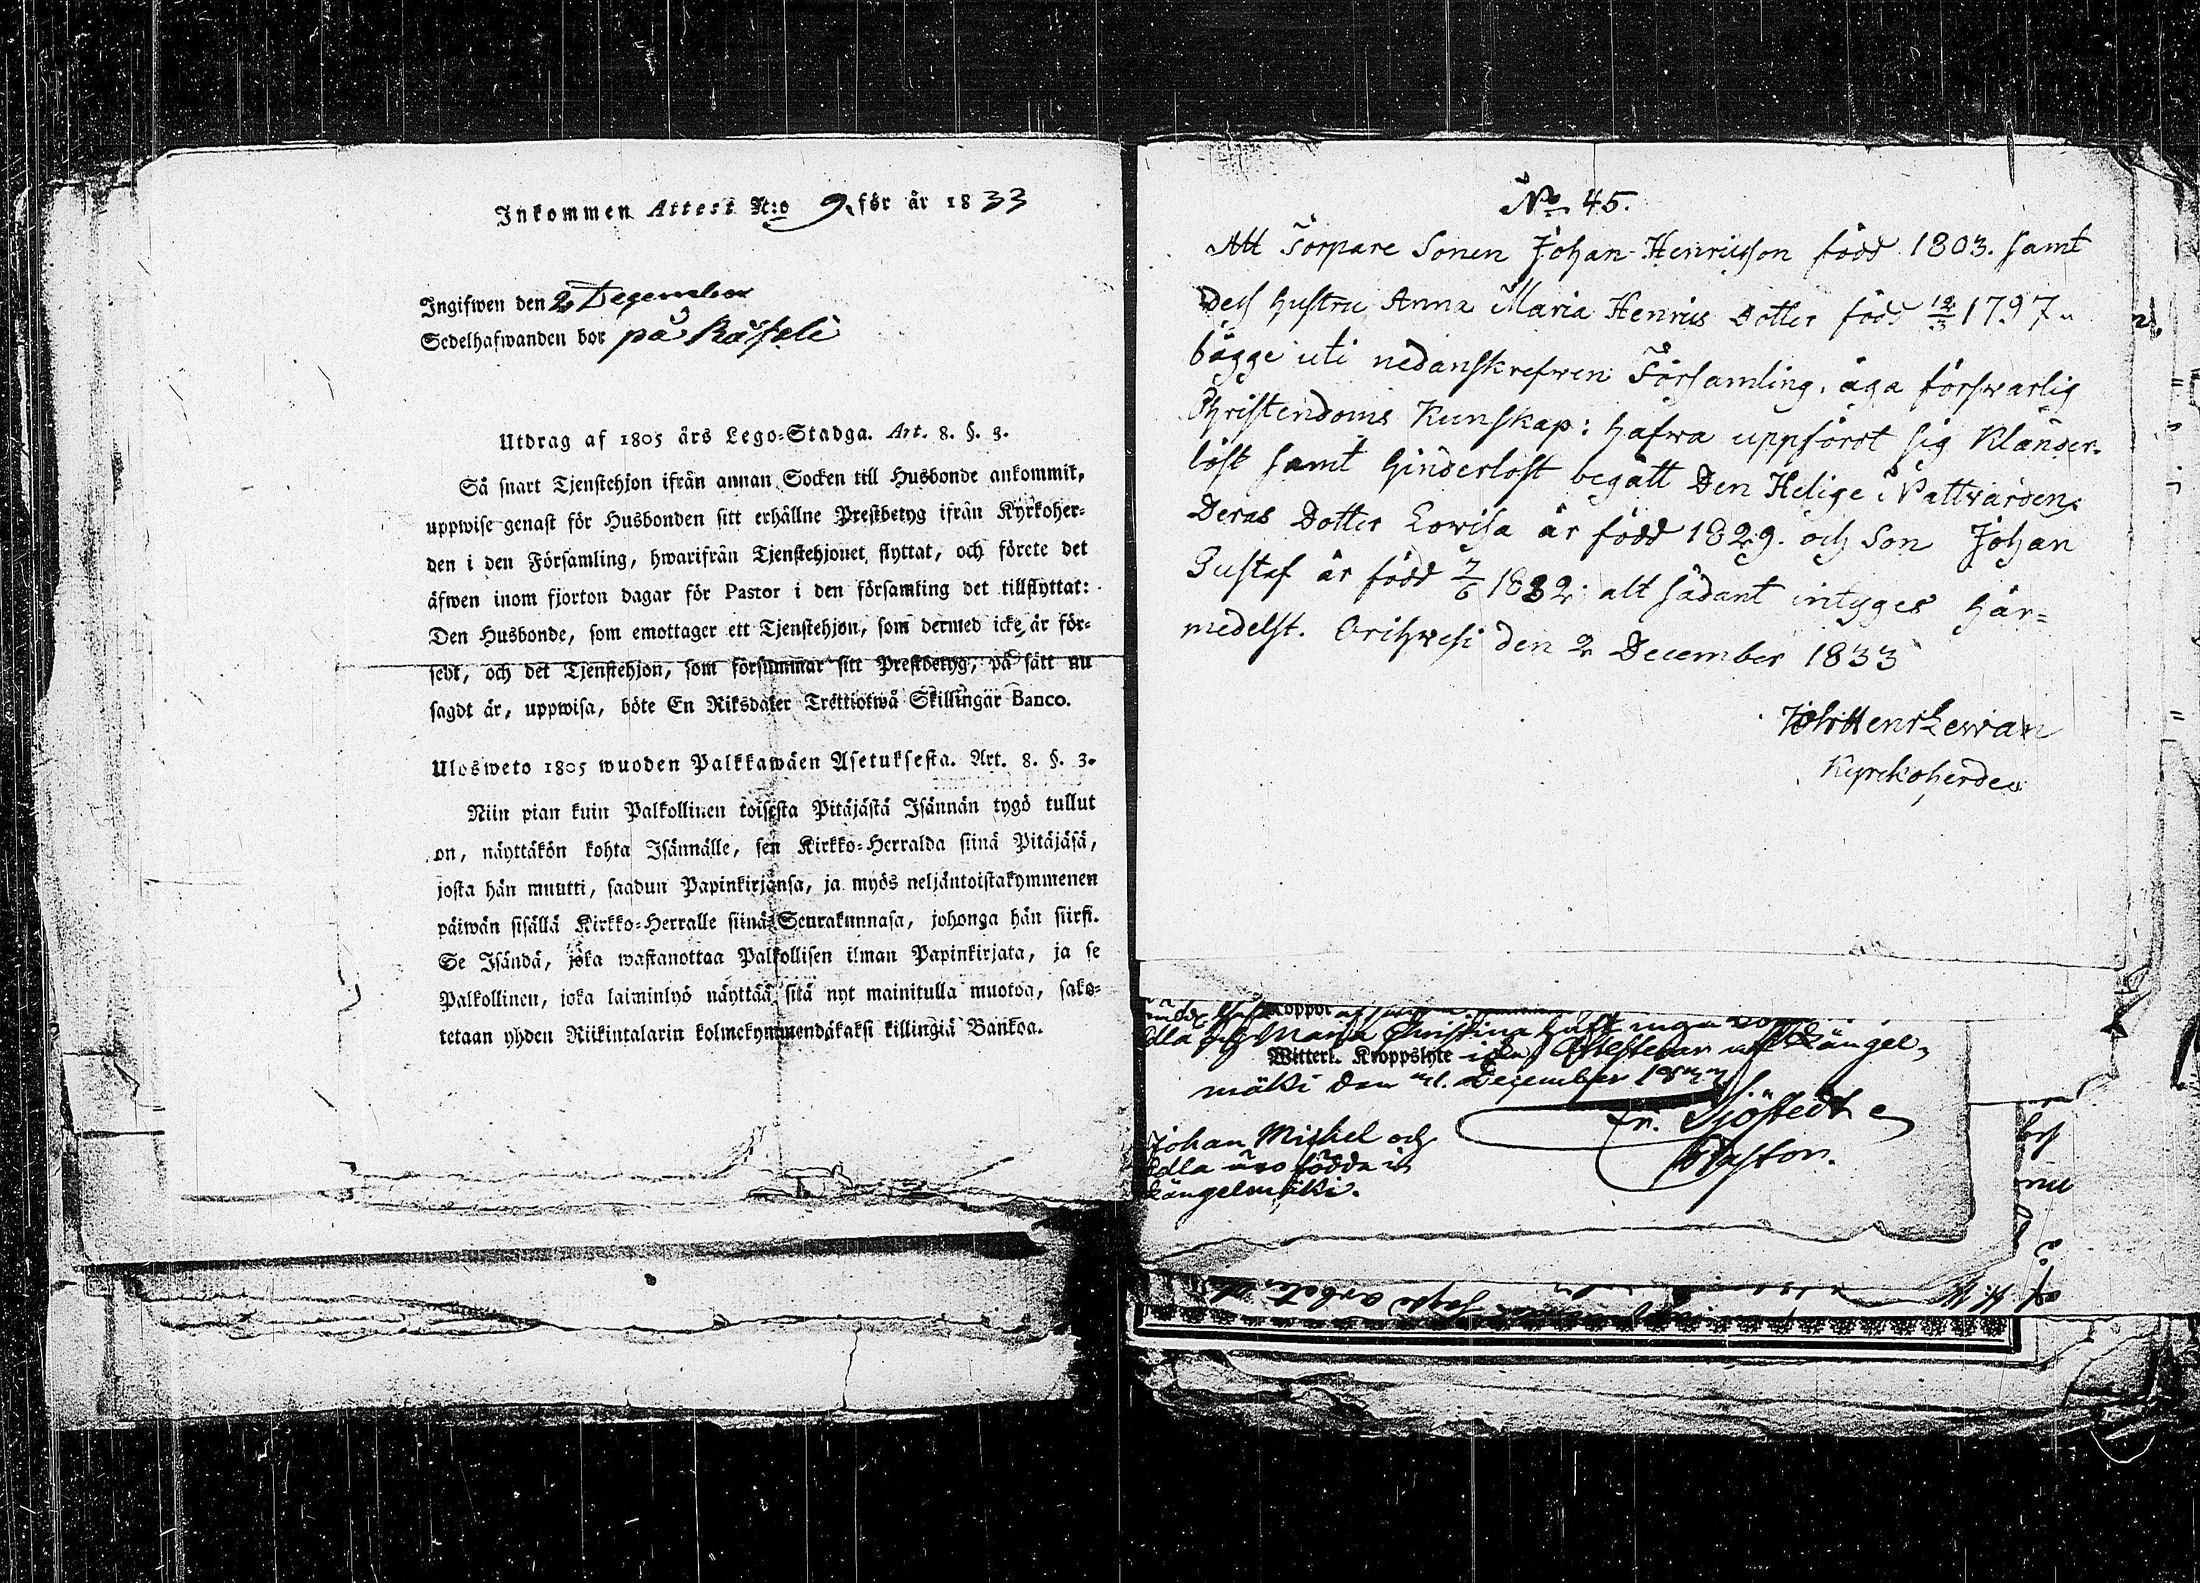 Inkommen Attest N:o 9. för år 1833
Ingifwen den 2 December
Sedelhafwanden bor på
Utdrag af 1805 års Lego-Stadga. Art. 8. §. 3.
Så snart Tjenstehjon ifrån annan Socken till Husbonde ankommit,
uppwise genast för Husbonden sitt erhållne Prestbetyg ifrån Kyrkoher-
den i den Församling, hwarifrån Tjenstehjonet flyttat, och förete det
äfwen inom fjorton dagar för Pastor i den församling det tillflyttat:
Den Husbonde, som emottager ett Tjenstehjon, som dermed icke är för-
sedt, och det Tjenstehjon, som försummar sitt Prestbetyg, på sätt nu
sagdt är, uppwisa, böte En Riksdaler Trettiotwå Skillingar Banco.
Ulosweto 1805 wuoden Palkkawäen Asetuksesta. Art. 8. §. 3.
Niin pian kuin Palkollinen toisesta Pitäjästä Isännän tygö tullut
on, näyttäkön kohta Isännälle, sen Kirkko-Herralda siinä Pitäjäsä,
josta hän muutti, saadun Papinkirjansa, ja myös neljäntoistakymmenen
päiwän sisällä Kirkko-Herralle siinä Seurakunnasa, johonga hän siirsi.
Se Isändä, joka wastanottaa Palkollisen ilman Papinkirjata, ja se
Palkollinen, joka laiminlyö näyttää sitä nyt mainitulla muotoa, sako-
tetaan yhden Riikintalarin kolmekymmendäkaksi killingiä Bankoa.
No 45.
Att Torpare Sonen Johan Henricsson född 1803. samt
Dess hustru Anna Maria Henrics Dotter född 12/3 1797
bägge uti nedanskrefwen Församling, äga förswarlig
Christendoms Kunskap: hafwa uppfördt sig Klander-
löst samt hinderlöst begått Den Helige Nattwarden.
Deras Dotter Lowisa är född 1829. och Son Johan
Gustaf är född 7/6 1832. alt sådant intyges här-
medelst. Orihwesi den 2 December 1833
Kyrckoherde
Maria Christina haft
Witterl. Kroppslyte Längel-
mäki den December
Fr. Sjöstedt
Pastor.
Johan Michel och
Edla äro födde i
Längelmäki.